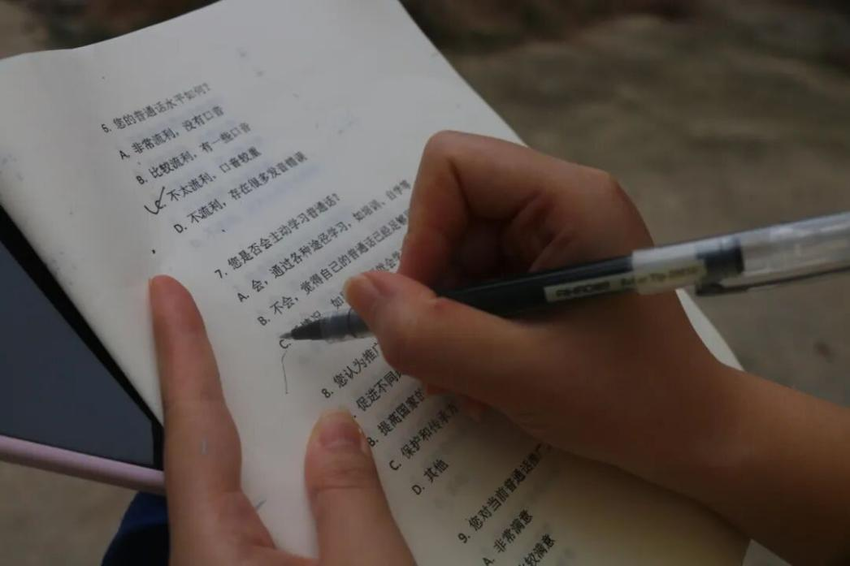 6. 您的普通话水平如何？
A. 非常流利，没有口音
B. 比较流利，有一些口音
不太流利，口音较重
D. 不流利，存在很多发音错误
7. 您是否会主动学习普通话？
A. 会，通过各种途径学习，如培训、自学等
B. 不会，觉得自己的普通话已经足够
C
8. 您认为推广
促进不同
B. 提高国家的
C. 保护和传承
D. 其他
9. 您对当前普通话推广
A. 非常满意
比较满意